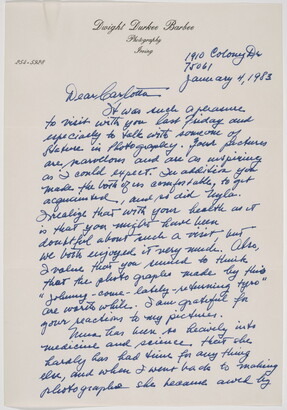 Dwight Durkee Barbee
Photography
Irving
254-5520
1910 Colony Dr
75061
January 4, 1983
Dear Carlotta
It was such a pleasure
to visit with you last Friday and
especially to talk with someone of
stature in Photography. Your pictures
are marvelous and are as inspiring
as I could expect. In addition you
made the both of us comfortable, to get
acquainted, and so did
I realize that with your health as it
is that you might have been
doubtful about such a visit, but
we both enjoyed it very much. Also,
I value that you seemed to think
that the photographs made by this
"Johnny-come-lately-returning tyro"
are worth while. I am grateful for
your reactions to my pictures.
has been so heavily into
medicine and science that she
hardly has had time for any thing
else, and when I went back to making
photographs she became awed by